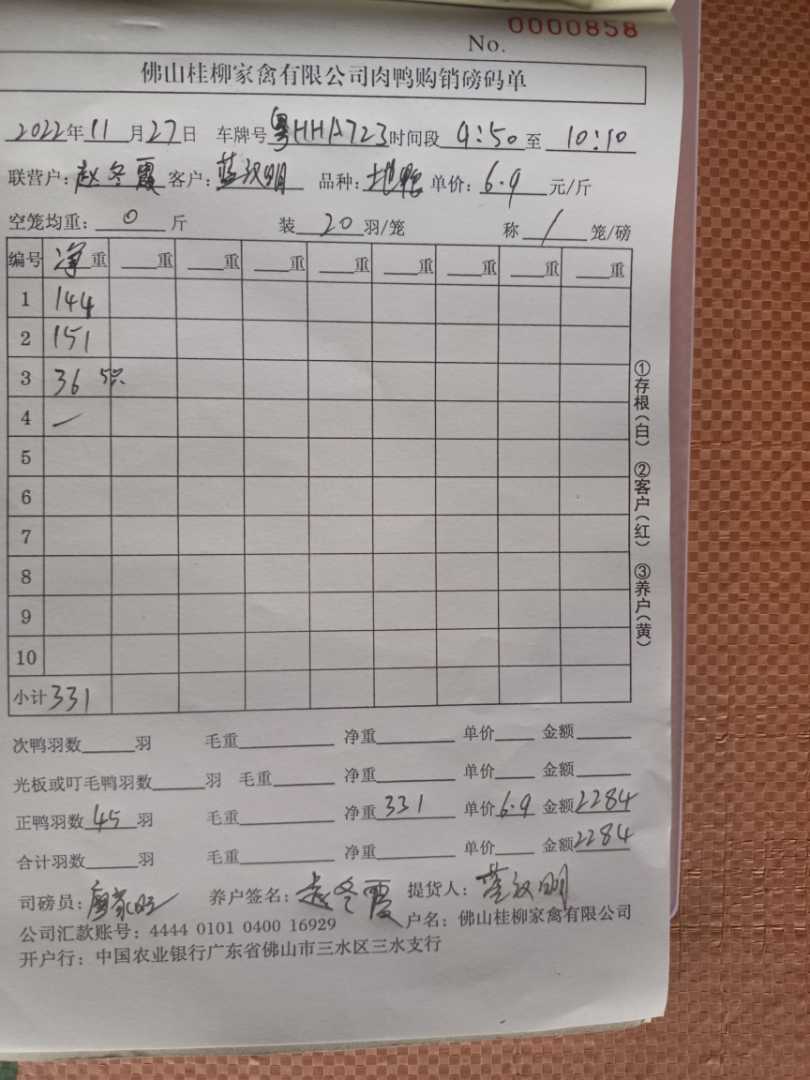 No. 0000858
佛山桂柳家禽有限公司肉鸭购销磅码单
2022年11月27日 车牌号粤HHA723时间段9:50至10:10
联营户:赵冬霞客户:蓝汉明 品种: 单价:6.9元/斤
空笼均重:0斤 装20羽/笼 称1笼/磅
编号 净重 重 重 重 重 重 重 重 重
1 144
2 151
3 36 5只
4 一
5
6
7
8
9
10
小计 331
①存根(白) ②客户(红) ③养户(黄)
次鸭羽数 羽 毛重 净重 单价 金额
光板或叮毛鸭羽数 羽 毛重 净重 单价 金额
正鸭羽数45羽 毛重 净重331 单价6.9 金额2284
合计羽数 羽 毛重 净重 单价 金额2284
司磅员: 养户签名:赵冬霞 提货人:蓝汉明
公司汇款账号:4444 0101 0400 16929 户名:佛山桂柳家禽有限公司
开户行:中国农业银行广东省佛山市三水区三水支行